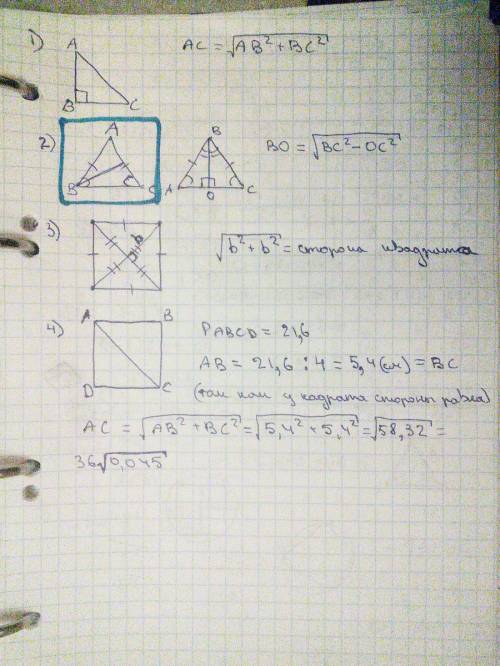 1) A B C AC = √AB² + BC²
2) A B C A B C O BO = √BC² − OC²
3) b b √b² + b² = сторона квадрата
4) A B D C PABCD = 21,6
AB = 21,6 : 4 = 5,4 (см) = BC
(так как у кадрата стороны равна)
AC = √AB² + BC² = √5,4² + 5,4² = √58,32 =
36√0,045